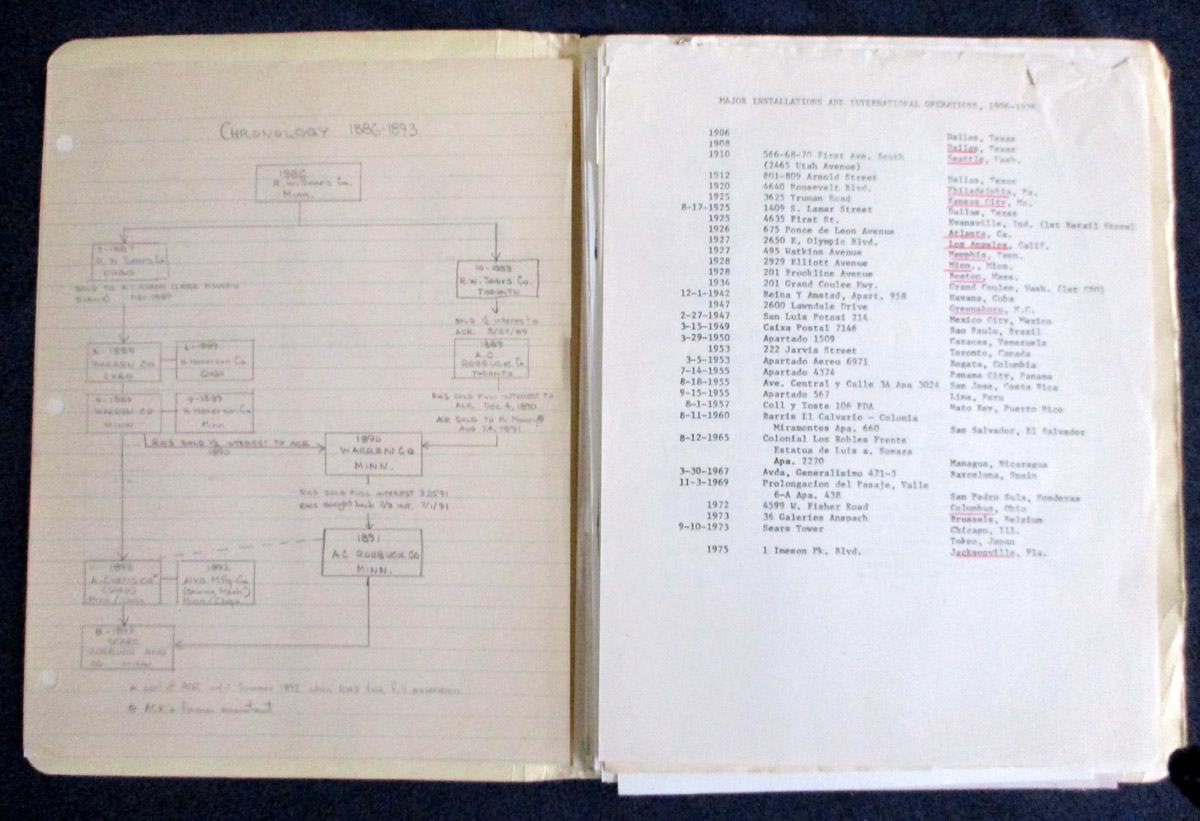 CHRONOLOGY 1886-1893
1886
R.W. Sears Co.
Minn.
R.W. Sears Co
CHGO
10-1888
R.W. Sears Co.
TORONTO
SOLD 1/2 interest to
ACR
1889
A.C
ROEBUCK Co
TORONTO
1889
WARREN CO
CHGO
Co
CHGO
WARREN CO
MINN
Co
Minn
RWS SOLD FULL INTEREST TO
ACR DEC 4, 1890
ACR SOLD TO
AUG 24, 1891
RWS SOLD 1/2 INTEREST TO ACR
1890
1890
WARREN CO
MINN.
RWS SOLD FULL INTEREST
RWS bought back INT. 7/1/91
1891
A.C. ROEBUCK CO
MINN.
1892
Minn/
1892
Alva Mfg. Co
SEARS
ROEBUCK AND
CO MINN
until Summer 1892 when RWS took full possession
ACR's former
MAJOR INSTALLATIONS AND INTERNATIONAL OPERATIONS, 1906-1976
1906 Dallas, Texas
1908 Dallas, Texas
1910 566-68-70 First Ave. South Seattle, Wash.
(2465 Utah Avenue)
1912 801-809 Arnold Street Dallas, Texas
1920 4640 Roosevelt Blvd. Philadelphia, Pa.
1925 3625 Truman Road Kansas City, Mo.
8-17-1925 1409 S. Lamar Street Dallas, Texas
1925 4635 First St. Evansville, Ind. (1st Retail Store)
1926 675 Ponce de Leon Avenue Atlanta, Ga.
1927 2650 E. Olympic Blvd. Los Angeles, Calif.
1927 495 Watkins Avenue Memphis, Tenn.
1928 2929 Elliott Avenue Minn., Minn.
1928 201 Brookline Avenue Boston, Mass.
1934 201 Grand Coulee Hwy. Grand Coulee, Wash. (1st CSO)
12-1-1942 Reina Y Amstad, Apart. 958 Havana, Cuba
1947 2600 Lawndale Drive Greensboro, N.C.
2-27-1947 San Luis Potosi 214 Mexico City, Mexico
3-15-1949 Caixa Postal 7146 Sao Paulo, Brazil
3-29-1950 Apartado 1509 Caracas, Venezuela
1953 222 Jarvis Street Toronto, Canada
3-5-1953 Apartado Aereo 6971 Bogata, Columbia
7-14-1955 Apartado 4374 Panama City, Panama
8-18-1955 Ave. Central y Calle 3A Apa 3024 San Jose, Costa Rica
9-15-1955 Apartado 567 Lima, Peru
8-1-1957 Coll y Toste 106 PDA Hato Rey, Puerto Rico
8-11-1960 Barris El Calvario - Colonia
Miramontes Apa. 660 San Salvador, El Salvador
8-12-1965 Colonial Los Robles Frente
Estatua de Luis a. Somoza
Apa. 2270 Managua, Nicaragua
3-30-1967 Avda, Generalisimo 471-3 Barcelona, Spain
11-3-1969 Prolongacion del Pasaje, Valle
6-A Apa. 438 San Pedro Sula, Honduras
1972 4599 W. Fisher Road Columbus, Ohio
1973 36 Galeries Anspach Brussels, Belgium
9-10-1973 Sears Tower Chicago, Ill.
Tokeo, Japan
1975 1 Imeson Pk. Blvd. Jacksonville, Fla.